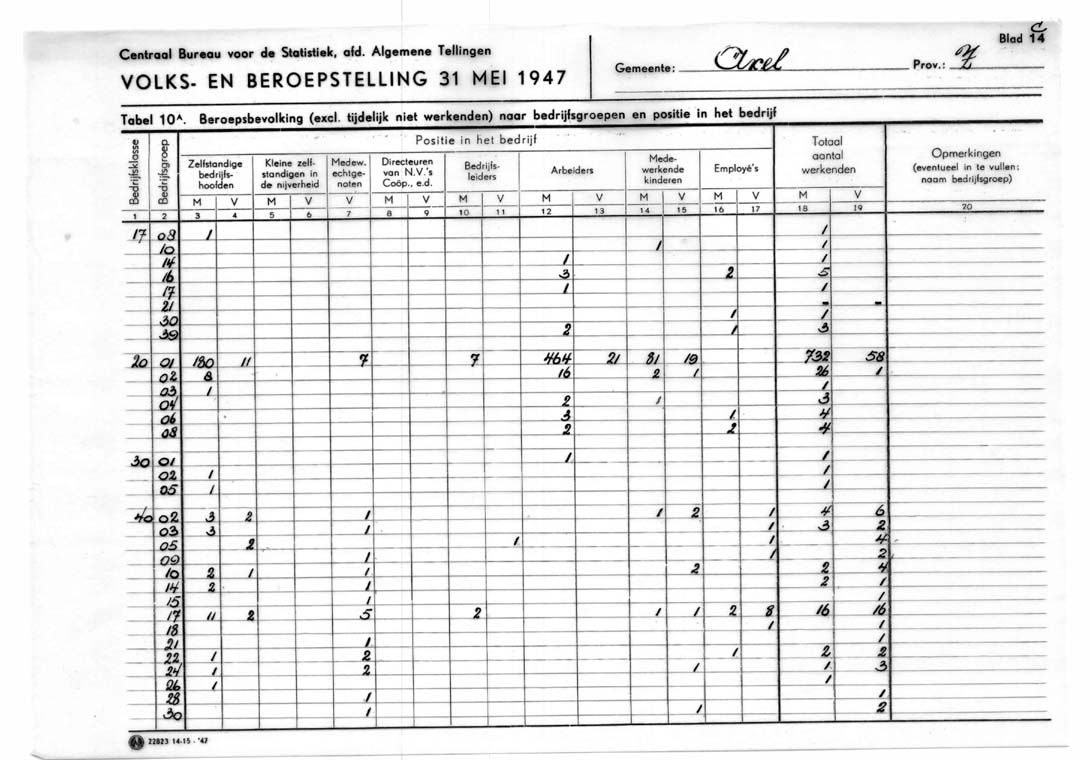 Blad 14 C
Centraal Bureau voor de Statistiek, afd. Algemene Tellingen
VOLKS- EN BEROEPSTELLING 31 MEI 1947
Gemeente: Axel Prov.: Z
Tabel 10A. Beroepsbevolking (excl. tijdelijk niet werkenden) naar bedrijfsgroepen en positie in het bedrijf
Bedrijfsklasse Bedrijfsgroep Positie in het bedrijf Totaal aantal werkenden Opmerkingen (eventueel in te vullen: naam bedrijfsgroep)
Zelfstandige bedrijfshoofden Kleine zelfstandigen in de nijverheid Medew. echtgenoten Directeuren van N.V.'s Coöp., e.d. Bedrijfsleiders Arbeiders Medewerkende kinderen Employé's
M V M V V M V M V M V M V M V M V
1 2 3 4 5 6 7 8 9 10 11 12 13 14 15 16 17 18 19 20
17 08 1 1
10 1 1
14 1 1
16 3 2 5
17 1 1
21 - -
30 1 1
39 2 1 3
20 01 180 11 7 7 464 21 81 19 732 58
02 8 16 2 1 26 1
03 1 1
04 2 1 3
06 3 1 4
08 2 2 4
30 01 1 1
02 1 1
05 1 1
40 02 3 2 1 1 2 1 4 6
03 3 1 1 3 2
05 2 1 1 4
09 1 1 2
10 2 1 1 2 2 4
14 2 1 2 1
15 1 1
17 11 2 5 2 1 1 2 8 16 16
18 1 1
21 1 1
22 1 2 1 2 2
24 1 2 1 1 3
26 1 1
28 1 1
30 1 1 2
22823 14-15 - '47